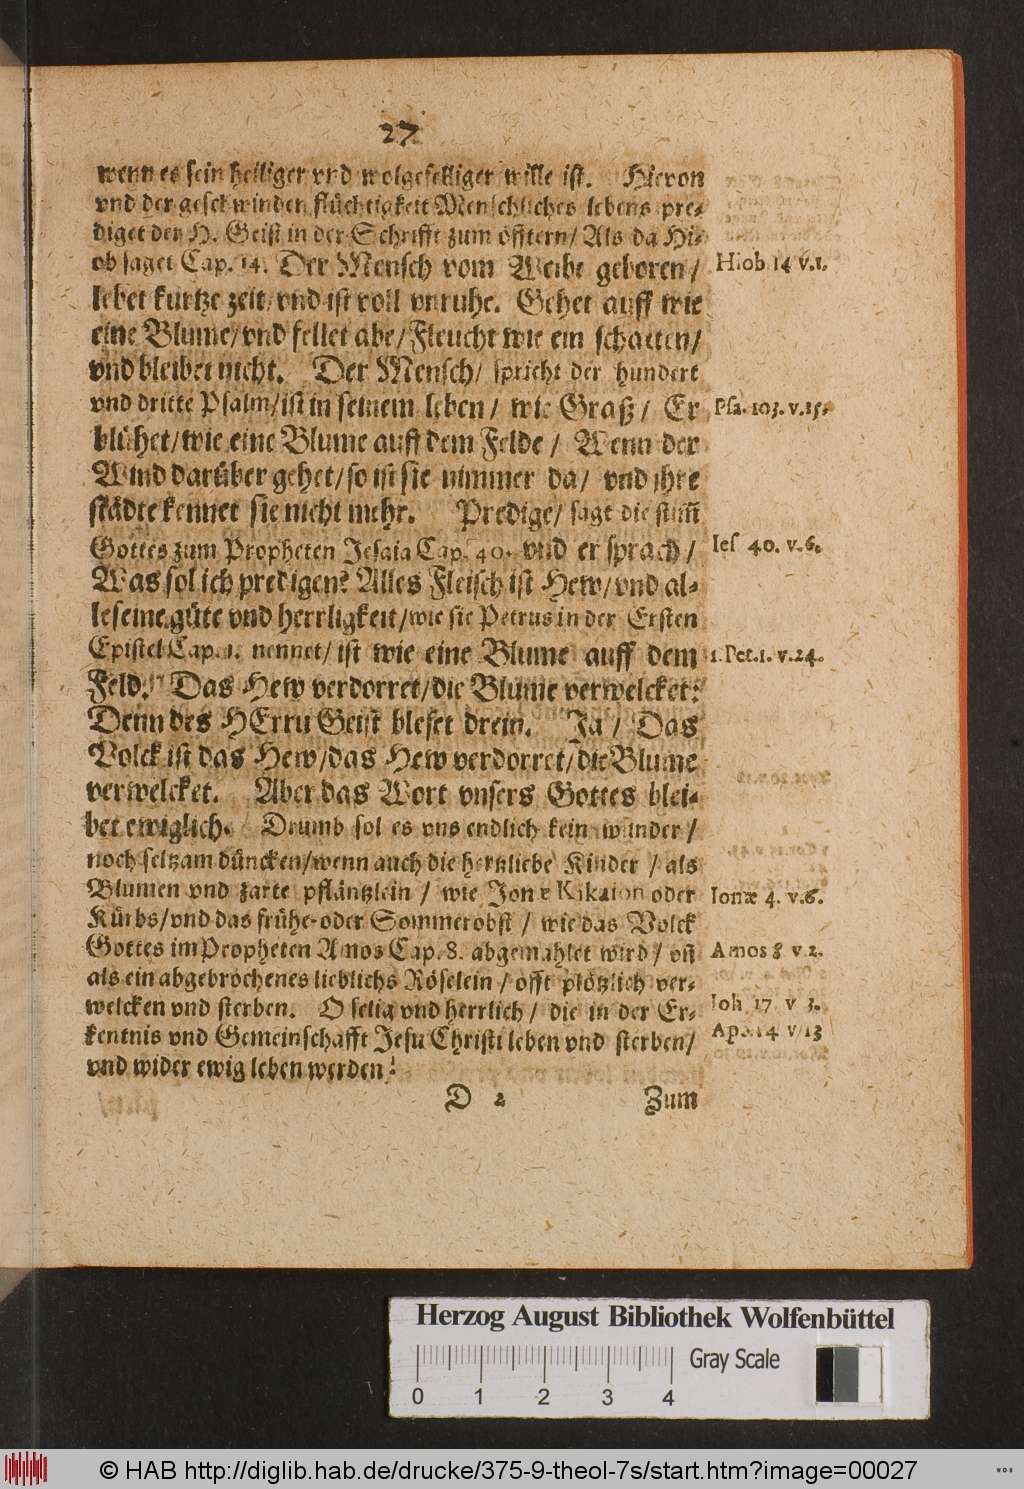 27
wenn es sein heiliger vnd wolgefelliger wille ist. Hievon
vnd der geschwinden flüchtigkeit Menschliches lebens pre-
diget der H. Geist in der Schrifft zum öfftern/ Als da Hi-
ob saget Cap. 14. Der Mensch vom Weibe geboren/
Hiob 14 v.1.
lebet kurtze zeit/ vnd ist voll vnruhe. Gehet auff wie
eine Blume/ vnd fellet abe/ Fleucht wie ein schatten/
vnd bleibet nicht. Der Mensch/ spricht der hundert
vnd dritte Psalm/ ist in seinem leben/ wie Graß/ Er
Psa. 103. v.15.
blühet/ wie eine Blume auff dem Felde/ Wenn der
Wind darüber gehet/ so ist sie nimmer da/ vnd jhre
städte kennet sie nicht mehr. Predige/ sagt die stim̃
Gottes zum Propheten Jesaia Cap. 40. vnd er sprach/
Ies 40. v.6.
Was sol ich predigen? Alles Fleisch ist Hew/ vnd al-
le seine güte vnd herrligkeit/ wie sie Petrus in der Ersten
Epistel Cap. 1. nennet/ ist wie eine Blume auff dem
1. Pet. 1. v.24.
Feld. Das Hew verdorret/ die Blume verwelcket:
Denn des HErrn Geist bleset drein. Ja/ Das
Volck ist das Hew/ das Hew verdorret/ die Blume
verwelcket. Aber das Wort vnsers Gottes blei-
bet ewiglich. Drumb sol es vns endlich kein wunder/
noch seltzam düncken/ wenn auch die hertzliebe Kinder/ als
Blumen vnd zarte pfläntzlein/ wie Jonæ Kikaion oder
Ionæ 4. v.6.
Kürbs/ vnd das frühe- oder Sommerobst/ wie das Volck
Gottes im Propheten Amos Cap. 8. abgemahlet wird/ vñ
Amos 8 v 2.
als ein abgebrochenes lieblichs Röselein/ offt plötzlich ver-
welcken vnd sterben. O selig vnd herrlich/ die in der Er-
Joh. 17. v 3.
kentnis vnd Gemeinschafft Jesu Christi leben vnd sterben/
Apo. 14 v 13
vnd wider ewig leben werden!
D 2 Zum
Herzog August Bibliothek Wolfenbüttel
Gray Scale
0 1 2 3 4
© HAB http://diglib.hab.de/drucke/375-9-theol-7s/start.htm?image=00027